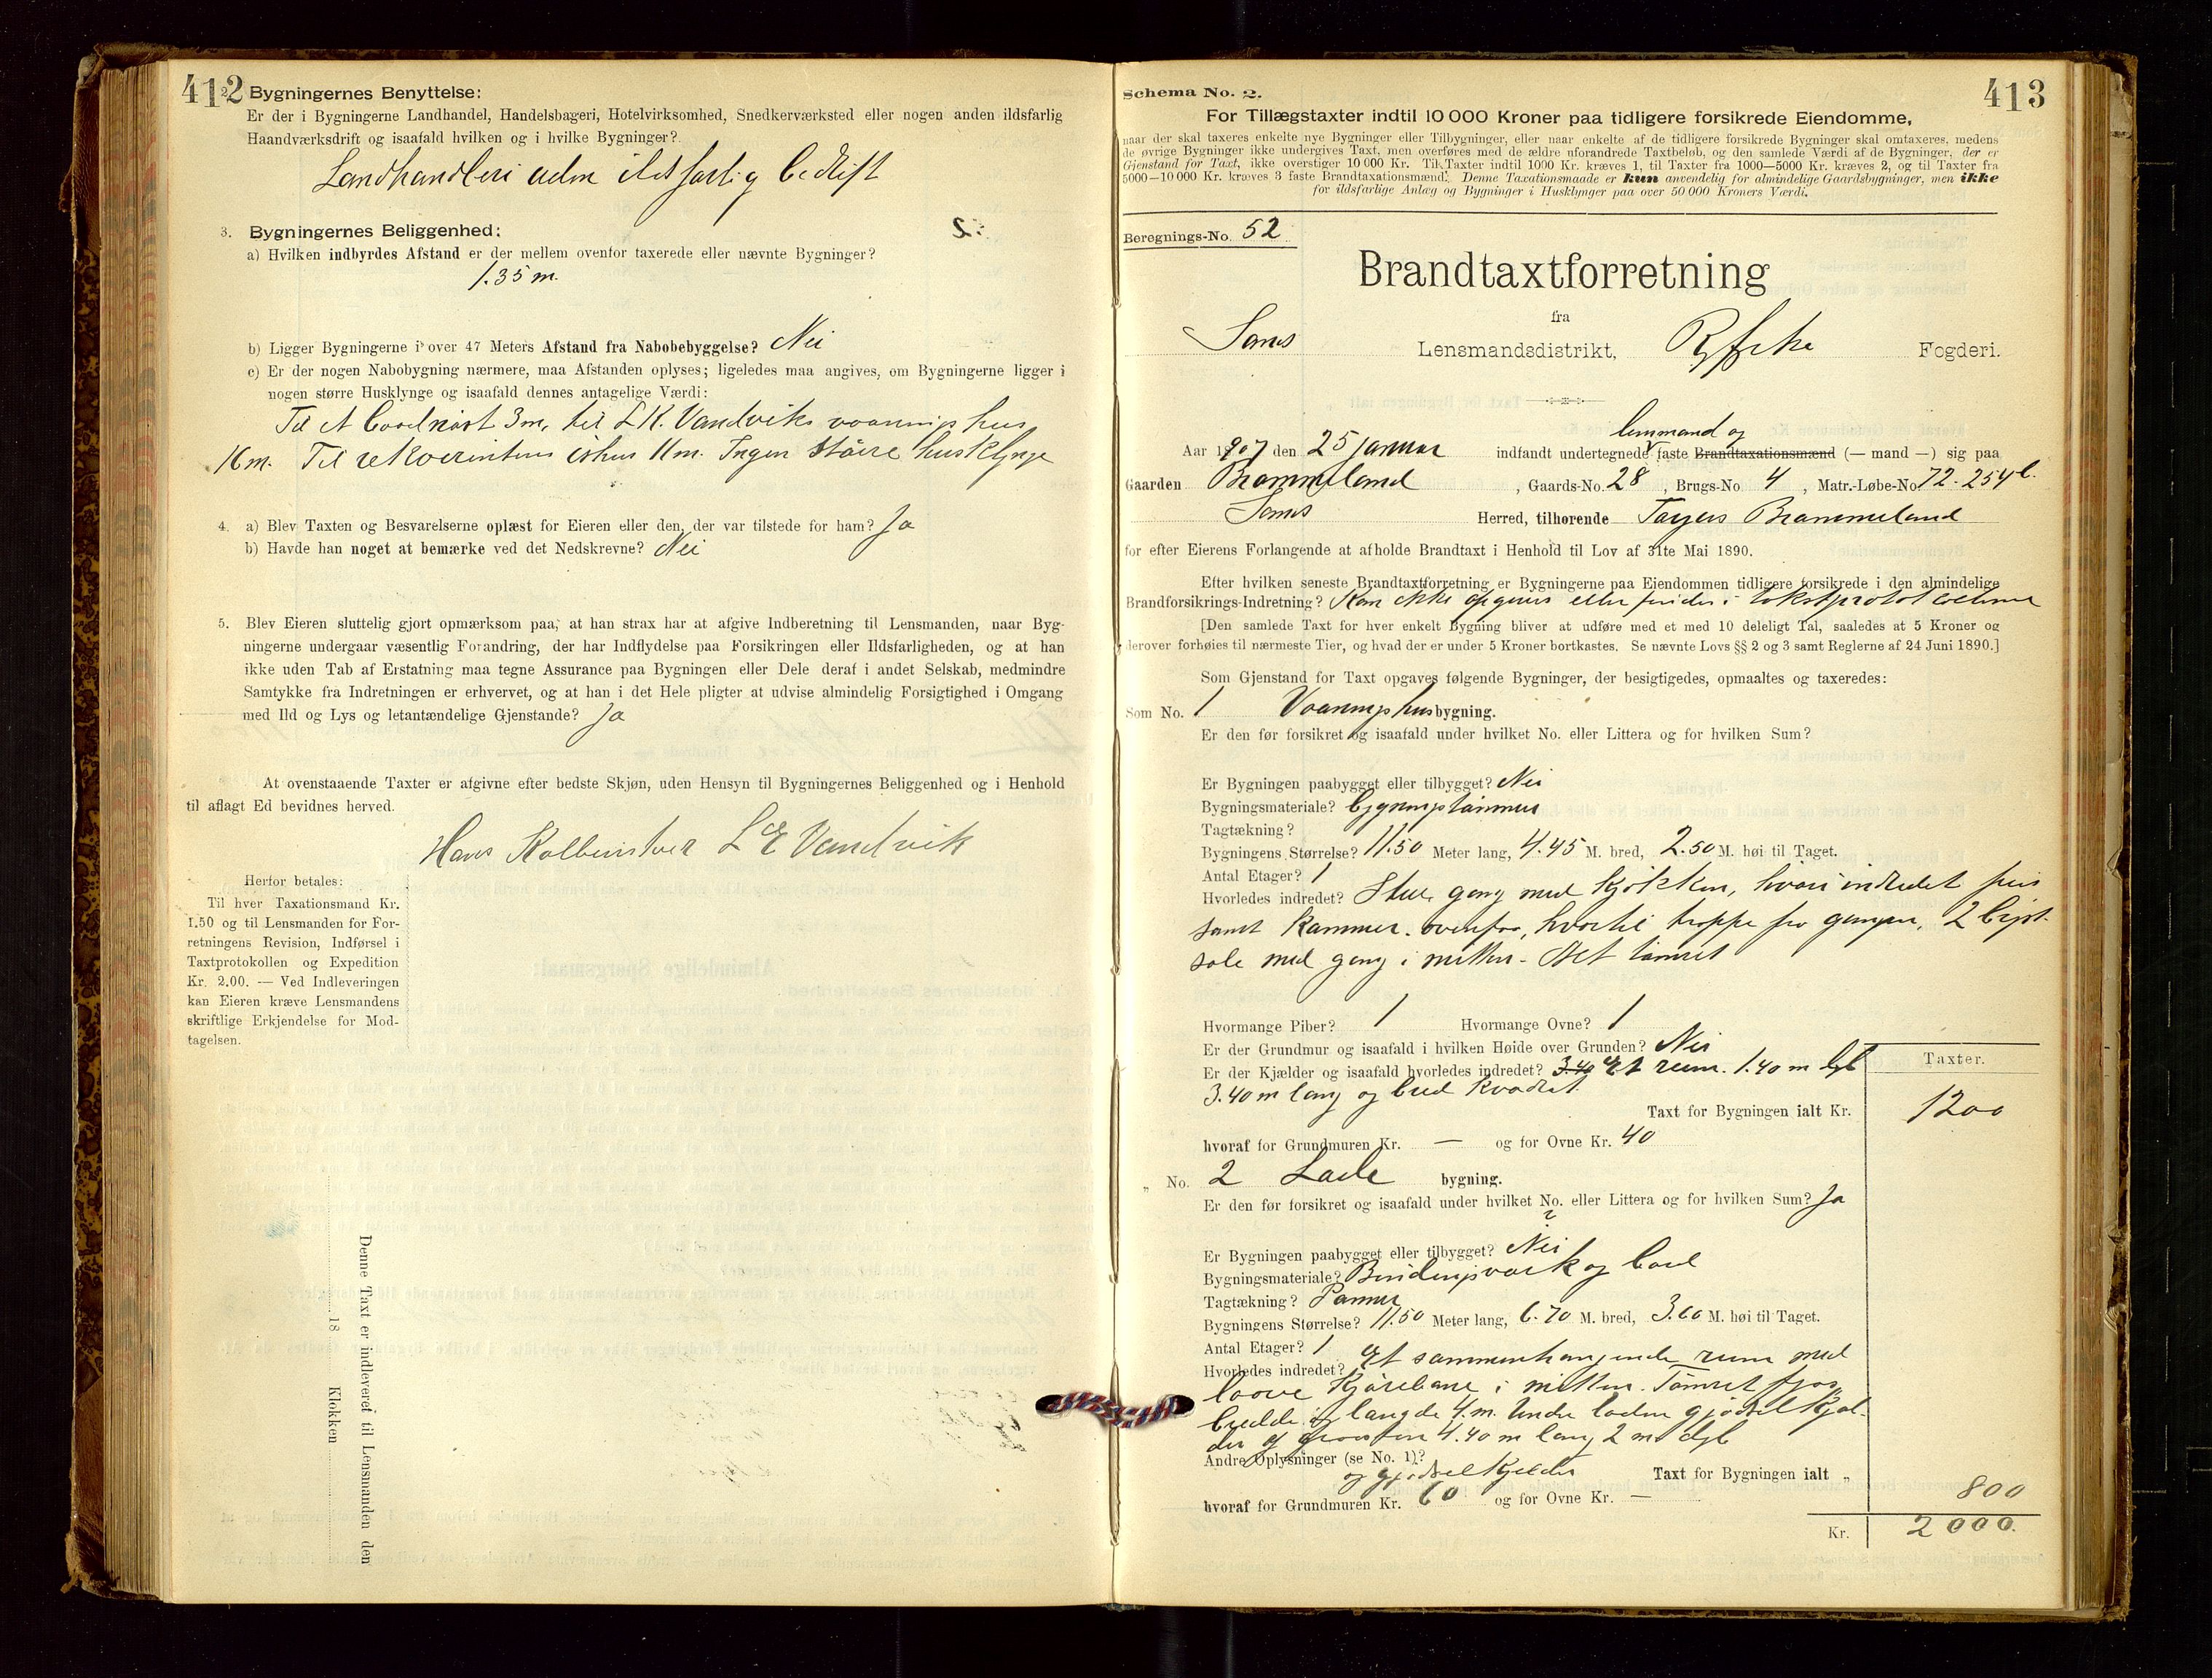 412
2. Bygningernes Benyttelse:
Er der i Bygningerne Landhandel, Handelsbageri, Hotelvirksomhed, Snedkerværksted eller nogen anden ildsfarlig
Haandværksdrift og isaafald hvilken og i hvilke Bygninger?
Landhandleri uden ildsfarlig bedrift
3. Bygningernes Beliggenhed:
a) Hvilken indbyrdes Afstand er der mellem ovenfor taxerede eller nævnte Bygninger?
1.35 m.
b) Ligger Bygningerne i over 47 Meters Afstand fra Nabobebyggelse? Nei
c) Er der nogen Nabobygning nærmere, maa Afstanden oplyses; ligeledes maa angives, om Bygningerne ligger i
nogen større Husklynge og isaafald dennes antagelige Værdi:
Til et baadnøst 3m, til L K. Vandviks vaaningshus
16 m. Til rekvirentens ishus 11m. Ingen større husklynge
4. a) Blev Taxten og Besvarelserne oplæst for Eieren eller den, der var tilstede for ham? Ja
b) Havde han noget at bemærke ved det Nedskrevne? Nei
5. Blev Eieren sluttelig gjort opmærksom paa, at han strax har at afgive Indberetning til Lensmanden, naar Byg-
ningerne undergaar væsentlig Forandring, der har Indflydelse paa Forsikringen eller Ildsfarligheden, og at han
ikke uden Tab af Erstatning maa tegne Assurance paa Bygningen eller Dele deraf i andet Selskab, medmindre
Samtykke fra Indretningen er erhvervet, og at han i det Hele pligter at udvise almindelig Forsigtighed i Omgang
med Ild og Lys og letantændelige Gjenstande? Ja
At ovenstaaende Taxter er afgivne efter bedste Skjøn, uden Hensyn til Bygningernes Beliggenhed og i Henhold
til aflagt Ed bevidnes herved.
Hans Kolbenstvet L E Vandvik
Herfor betales:
Til hver Taxationsmand Kr.
1.50 og til Lensmanden for For-
retningens Revision, Indførsel i
Taxtprotokollen og Expedition
Kr. 2.00. — Ved Indleveringen
kan Eieren kræve Lensmandens
skriftlige Erkjendelse for Mod-
tagelsen.
Denne Taxt er indleveret til Lensmanden den
18 Klokken
413
Schema No. 2.
For Tillægstaxter indtil 10 000 Kroner paa tidligere forsikrede Eiendomme,
naar der skal taxeres enkelte nye Bygninger eller Tilbygninger, eller naar enkelte af de tidligere forsikrede Bygninger skal omtaxeres, medens
de øvrige Bygninger ikke undergives Taxt, men overføres med de ældre uforandrede Taxtbeløb, og den samlede Værdi af de Bygninger, der er
Gjenstand for Taxt, ikke overstiger 10 000 Kr. Til Taxter indtil 1000 Kr. kræves 1, til Taxter fra 1000—5000 Kr. kræves 2, og til Taxter fra
5000—10 000 Kr. kræves 3 faste Brandtaxationsmænd. Denne Taxationsmaade er kun anvendelig for almindelige Gaardsbygninger, men ikke
for ildsfarlige Anlæg og Bygninger i Husklynger paa over 50 000 Kroners Værdi.
Beregnings-No. 52
Brandtaxtforretning
fra
Sands Lensmandsdistrikt, Ryfylke Fogderi.
lensmand og
Aar 1907 den 25 januar indfandt undertegnede faste Brandtaxationsmænd (— mand —) sig paa
Gaarden Brommeland, Gaards-No. 28, Brugs-No. 4, Matr.-Løbe-No. 72-254 b.
Sands Herred, tilhørende Brommeland
for efter Eierens Forlangende at afholde Brandtaxt i Henhold til Lov af 31te Mai 1890.
Efter hvilken seneste Brandtaxtforretning er Bygningerne paa Eiendommen tidligere forsikrede i den almindelige
Brandforsikrings-Indretning? Kan ikke opgives eller findes i
[Den samlede Taxt for hver enkelt Bygning bliver at udføre med et med 10 deleligt Tal, saaledes at 5 Kroner og
derover forhøies til nærmeste Tier, og hvad der er under 5 Kroner bortkastes. Se nævnte Lovs §§ 2 og 3 samt Reglerne af 24 Juni 1890.]
Som Gjenstand for Taxt opgaves følgende Bygninger, der besigtigedes, opmaaltes og taxeredes:
Som No. 1 Vaaningshus bygning.
Er den før forsikret og isaafald under hvilket No. eller Littera og for hvilken Sum?
Er Bygningen paabygget eller tilbygget? Nei
Bygningsmateriale? bygningstømmer
Tagtækning?
Bygningens Størrelse? 11.50 Meter lang, 4.45 M. bred, 2.50 M. høi til Taget.
Antal Etager? 1
Hvorledes indredet? Stue, gang med kjøkken, hvori indredet peis
samt kammer. ovenpaa, hvortil trappe fra gangen, 2
sale med gang i midten. Alt tømret
Hvormange Piber? 1 Hvormange Ovne? 1
Er der Grundmur og isaafald i hvilken Høide over Grunden? Nei
Er der Kjælder og isaafald hvorledes indredet? 3.40 Et rum. 1.40 m dyb
3.40 m lang og bred kvadrat.
Taxter.
Taxt for Bygningen ialt Kr. 1200
hvoraf for Grundmuren Kr. — og for Ovne Kr. 40
„ No. 2 Lade bygning.
Er den før forsikret og isaafald under hvilket No. eller Littera og for hvilken Sum? Ja
?
Er Bygningen paabygget eller tilbygget? Nei
Bygningsmateriale? Bindingsværk og bord
Tagtækning? Panner
Bygningens Størrelse? 11.50 Meter lang, 6.70 M. bred, 3.60 M. høi til Taget.
Antal Etager? 1
Hvorledes indredet? Et sammenhængende rum med
loove kjørebane i midten. Tømret fjøs,
bredde i længde 4. m. Under laden gjødselkjæl-
der af graasten 4.40 m lang 2 m. dyb
Andre Oplysninger (se No. 1)?
og gjødselkjelder Taxt for Bygningen ialt „ 800
hvoraf for Grundmuren Kr. 60 og for Ovne Kr. —
Kr. 2000.